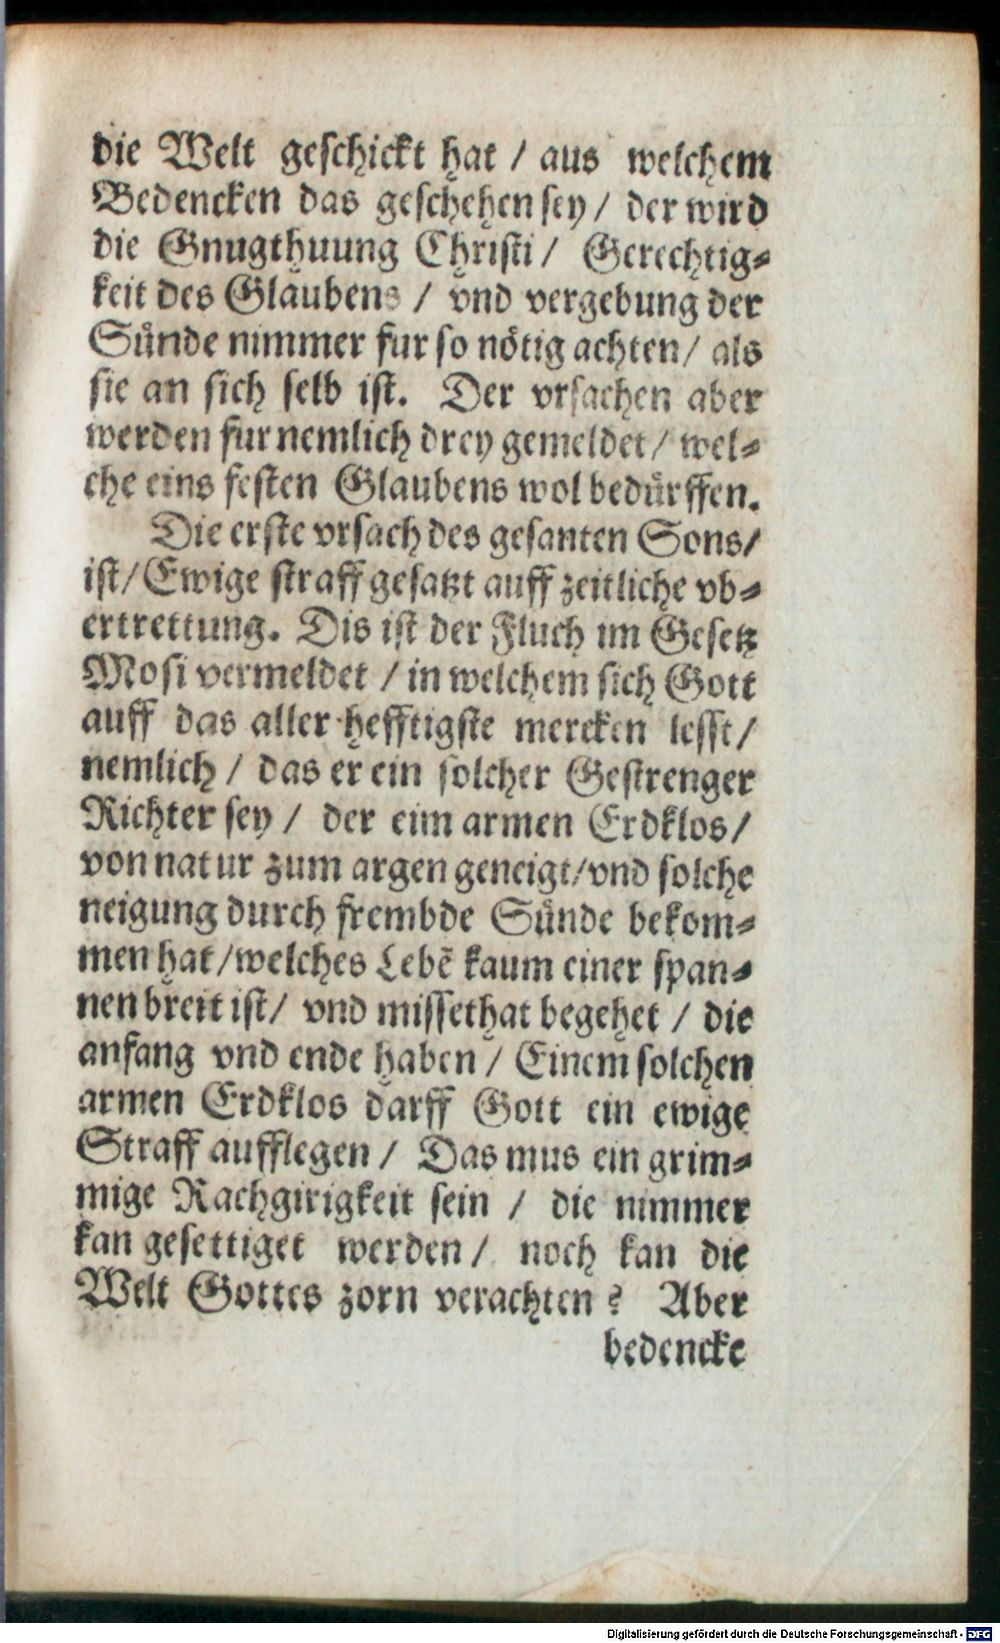 die Welt geschickt hat / aus welchem
Bedencken das geschehen sey / der wird
die Gnugthuung Christi / Gerechtig⸗
keit des Glaubens / vnd vergebung der
Suͤnde nimmer fur so noͤtig achten / als
sie an sich selb ist. Der vrsachen aber
werden furnemlich drey gemeldet / wel⸗
che eins festen Glaubens wol beduͤrffen.
Die erste vrsach des gesanten Sons /
ist / Ewige straff gesatzt auff zeitliche vb⸗
ertrettung. Dis ist der Fluch im Gesetz
Mosi vermeldet / in welchem sich Gott
auff das aller hefftigste mercken lesst /
nemlich / das er ein solcher Gestrenger
Richter sey / der eim armen Erdklos /
von natur zum argen geneigt / vnd solche
neigung durch frembde Suͤnde bekom⸗
men hat / welches Lebẽ kaum einer span⸗
nen breit ist / vnd missethat begehet / die
anfang vnd ende haben / Einem solchen
armen Erdklos darff Gott ein ewige
Straff aufflegen / Das mus ein grim⸗
mige Rachgirigkeit sein / die nimmer
kan gesettiget werden / noch kan die
Welt Gottes zorn verachten? Aber
bedencke
Digitalisierung gefördert durch die Deutsche Forschungsgemeinschaft - DFG